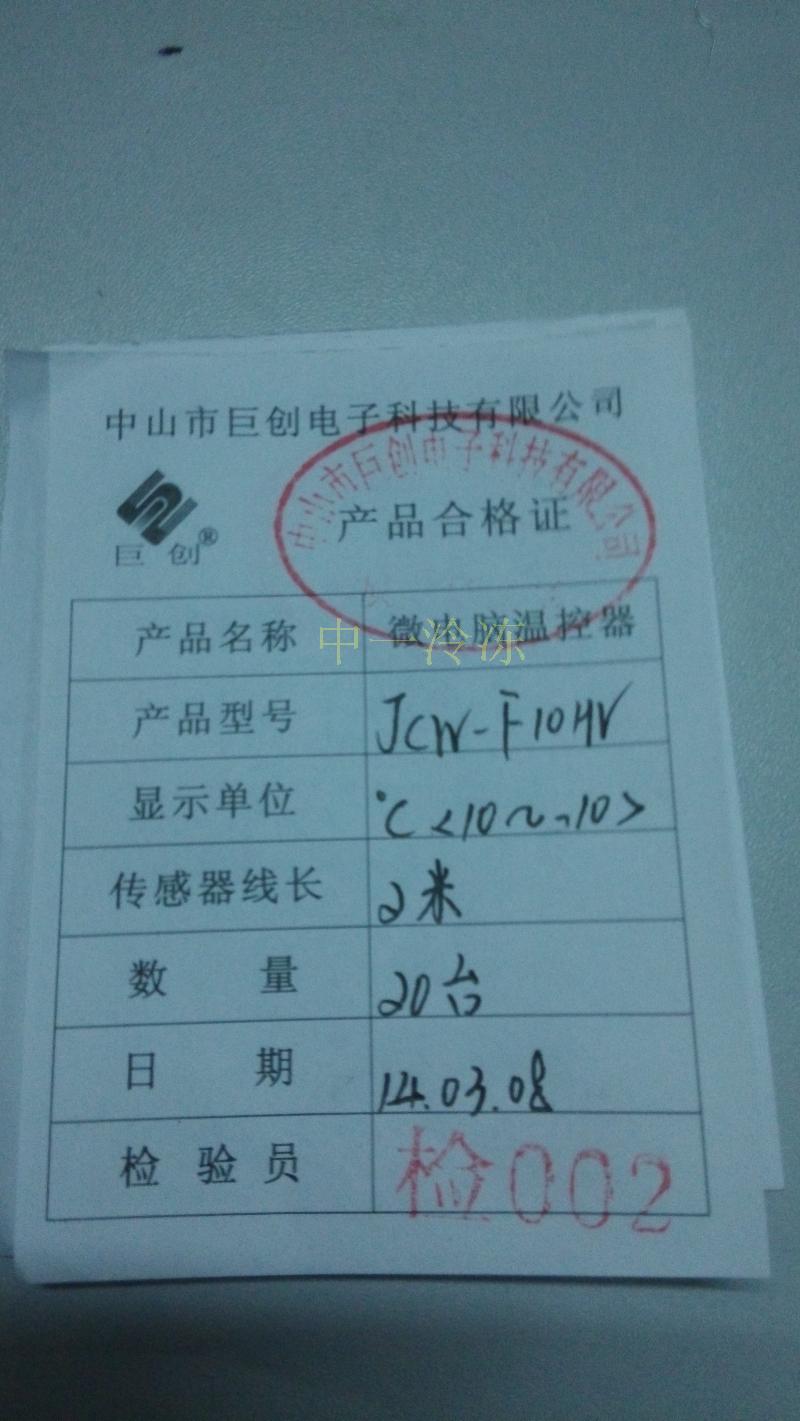 中山市巨创电子科技有限公司
中山市巨创电子科技有限公司
产品合格证
巨创®
产品名称 微电脑温控器
中一泠冻
产品型号 JCW-F10HV
显示单位 ℃<10~-10>
传感器线长 2米
数量 20台
日期 14.03.08
检验员 检002